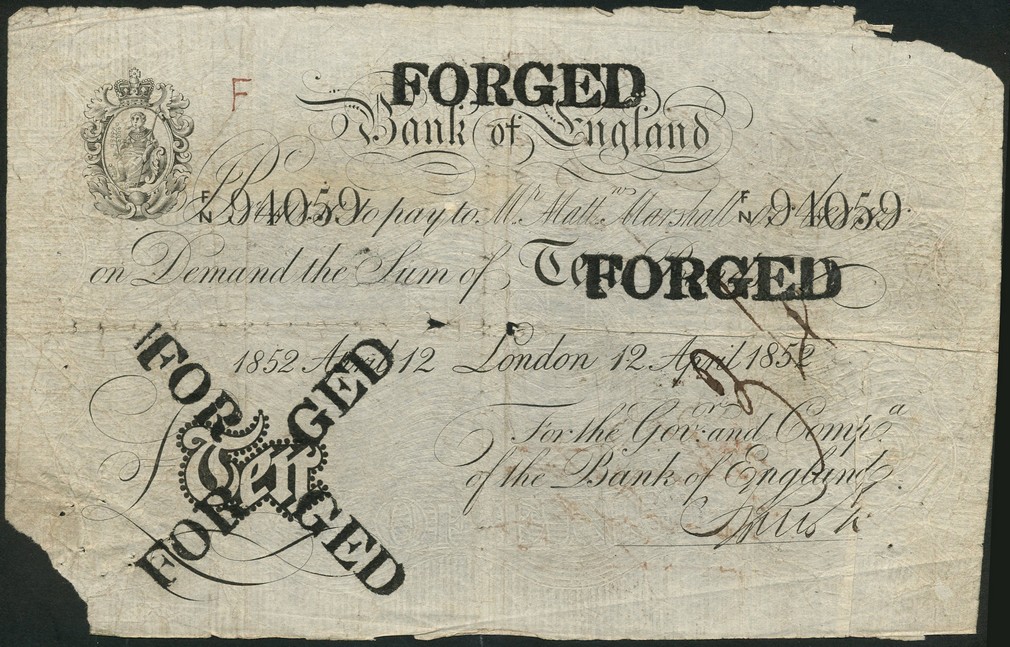 F
FORGED
Bank of England
F/N 94059 to pay to Mr. Mattw. Marshall F/N 94059
on Demand the Sum of Ten FORGED
1852 April 12 London 12 April 1852
For the Govr. and Compa.
of the Bank of England.
FORGED
Ten
FORGED